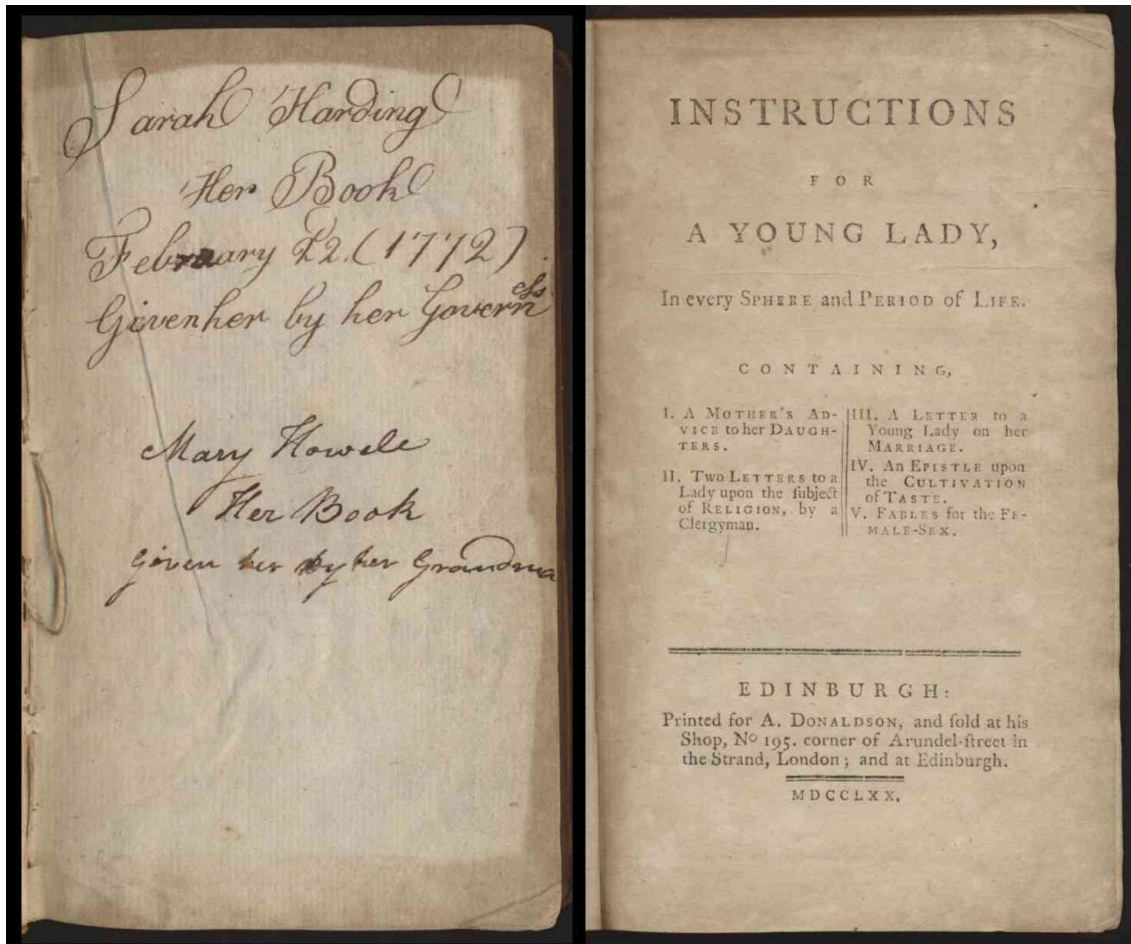 Sarah Harding
Her Book
February 22. (1772)
Given her by her Governeſs
Mary Howele
Her Book
Given her by her Grandma
INSTRUCTIONS
FOR
A YOUNG LADY,
In every SPHERE and PERIOD of LIFE.
CONTAINING,
I. A MOTHER'S AD-
VICE to her DAUGH-
TERS.
II. TWO LETTERS to a
Lady upon the ſubject
of RELIGION, by a
Clergyman.
III. A LETTER to a
Young Lady on her
MARRIAGE.
IV. An EPISTLE upon
the CULTIVATION
of TASTE.
V. FABLES for the FE-
MALE-SEX.
EDINBURGH:
Printed for A. DONALDSON, and ſold at his
Shop, Nº 195. corner of Arundel-ſtreet in
the Strand, London; and at Edinburgh.
MDCCLXX.